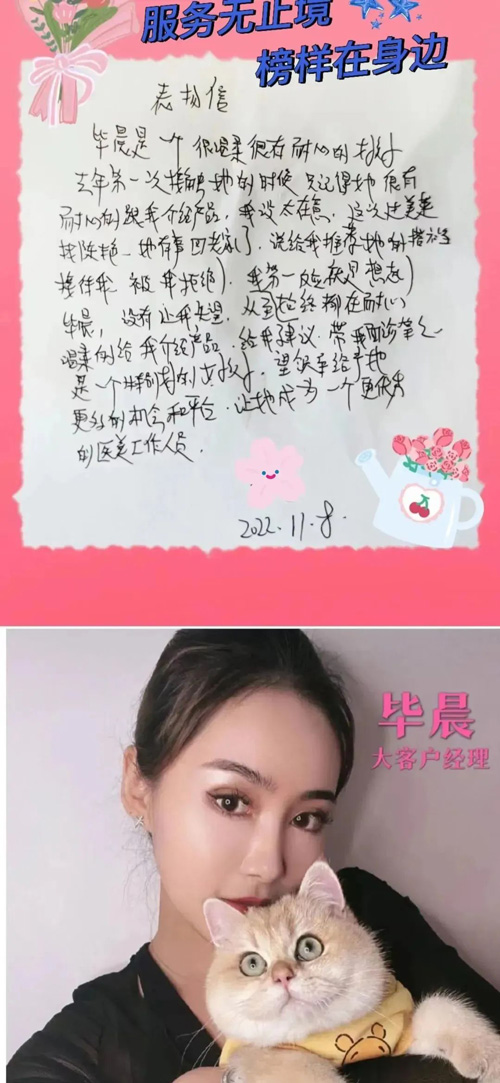 服务无止境
榜样在身边
表扬信
毕晨是一个很温柔很有耐心的
去年第一次接触她的时候只记得她很有
耐心的跟我介绍产品,我没太在意,这次过来是
她有事回老家了,说给我推荐她的
被我拒绝),我第一反应就是想起
毕晨,没有让我失望,从到始终都在耐心
温柔的给我介绍产品,给我建议,带我面诊等等
是一个特别好的女孩,望能给予她
更好的机会和平台,让她成为一个更优秀
的医美工作人员.
2022.11.8.
毕晨
大客户经理